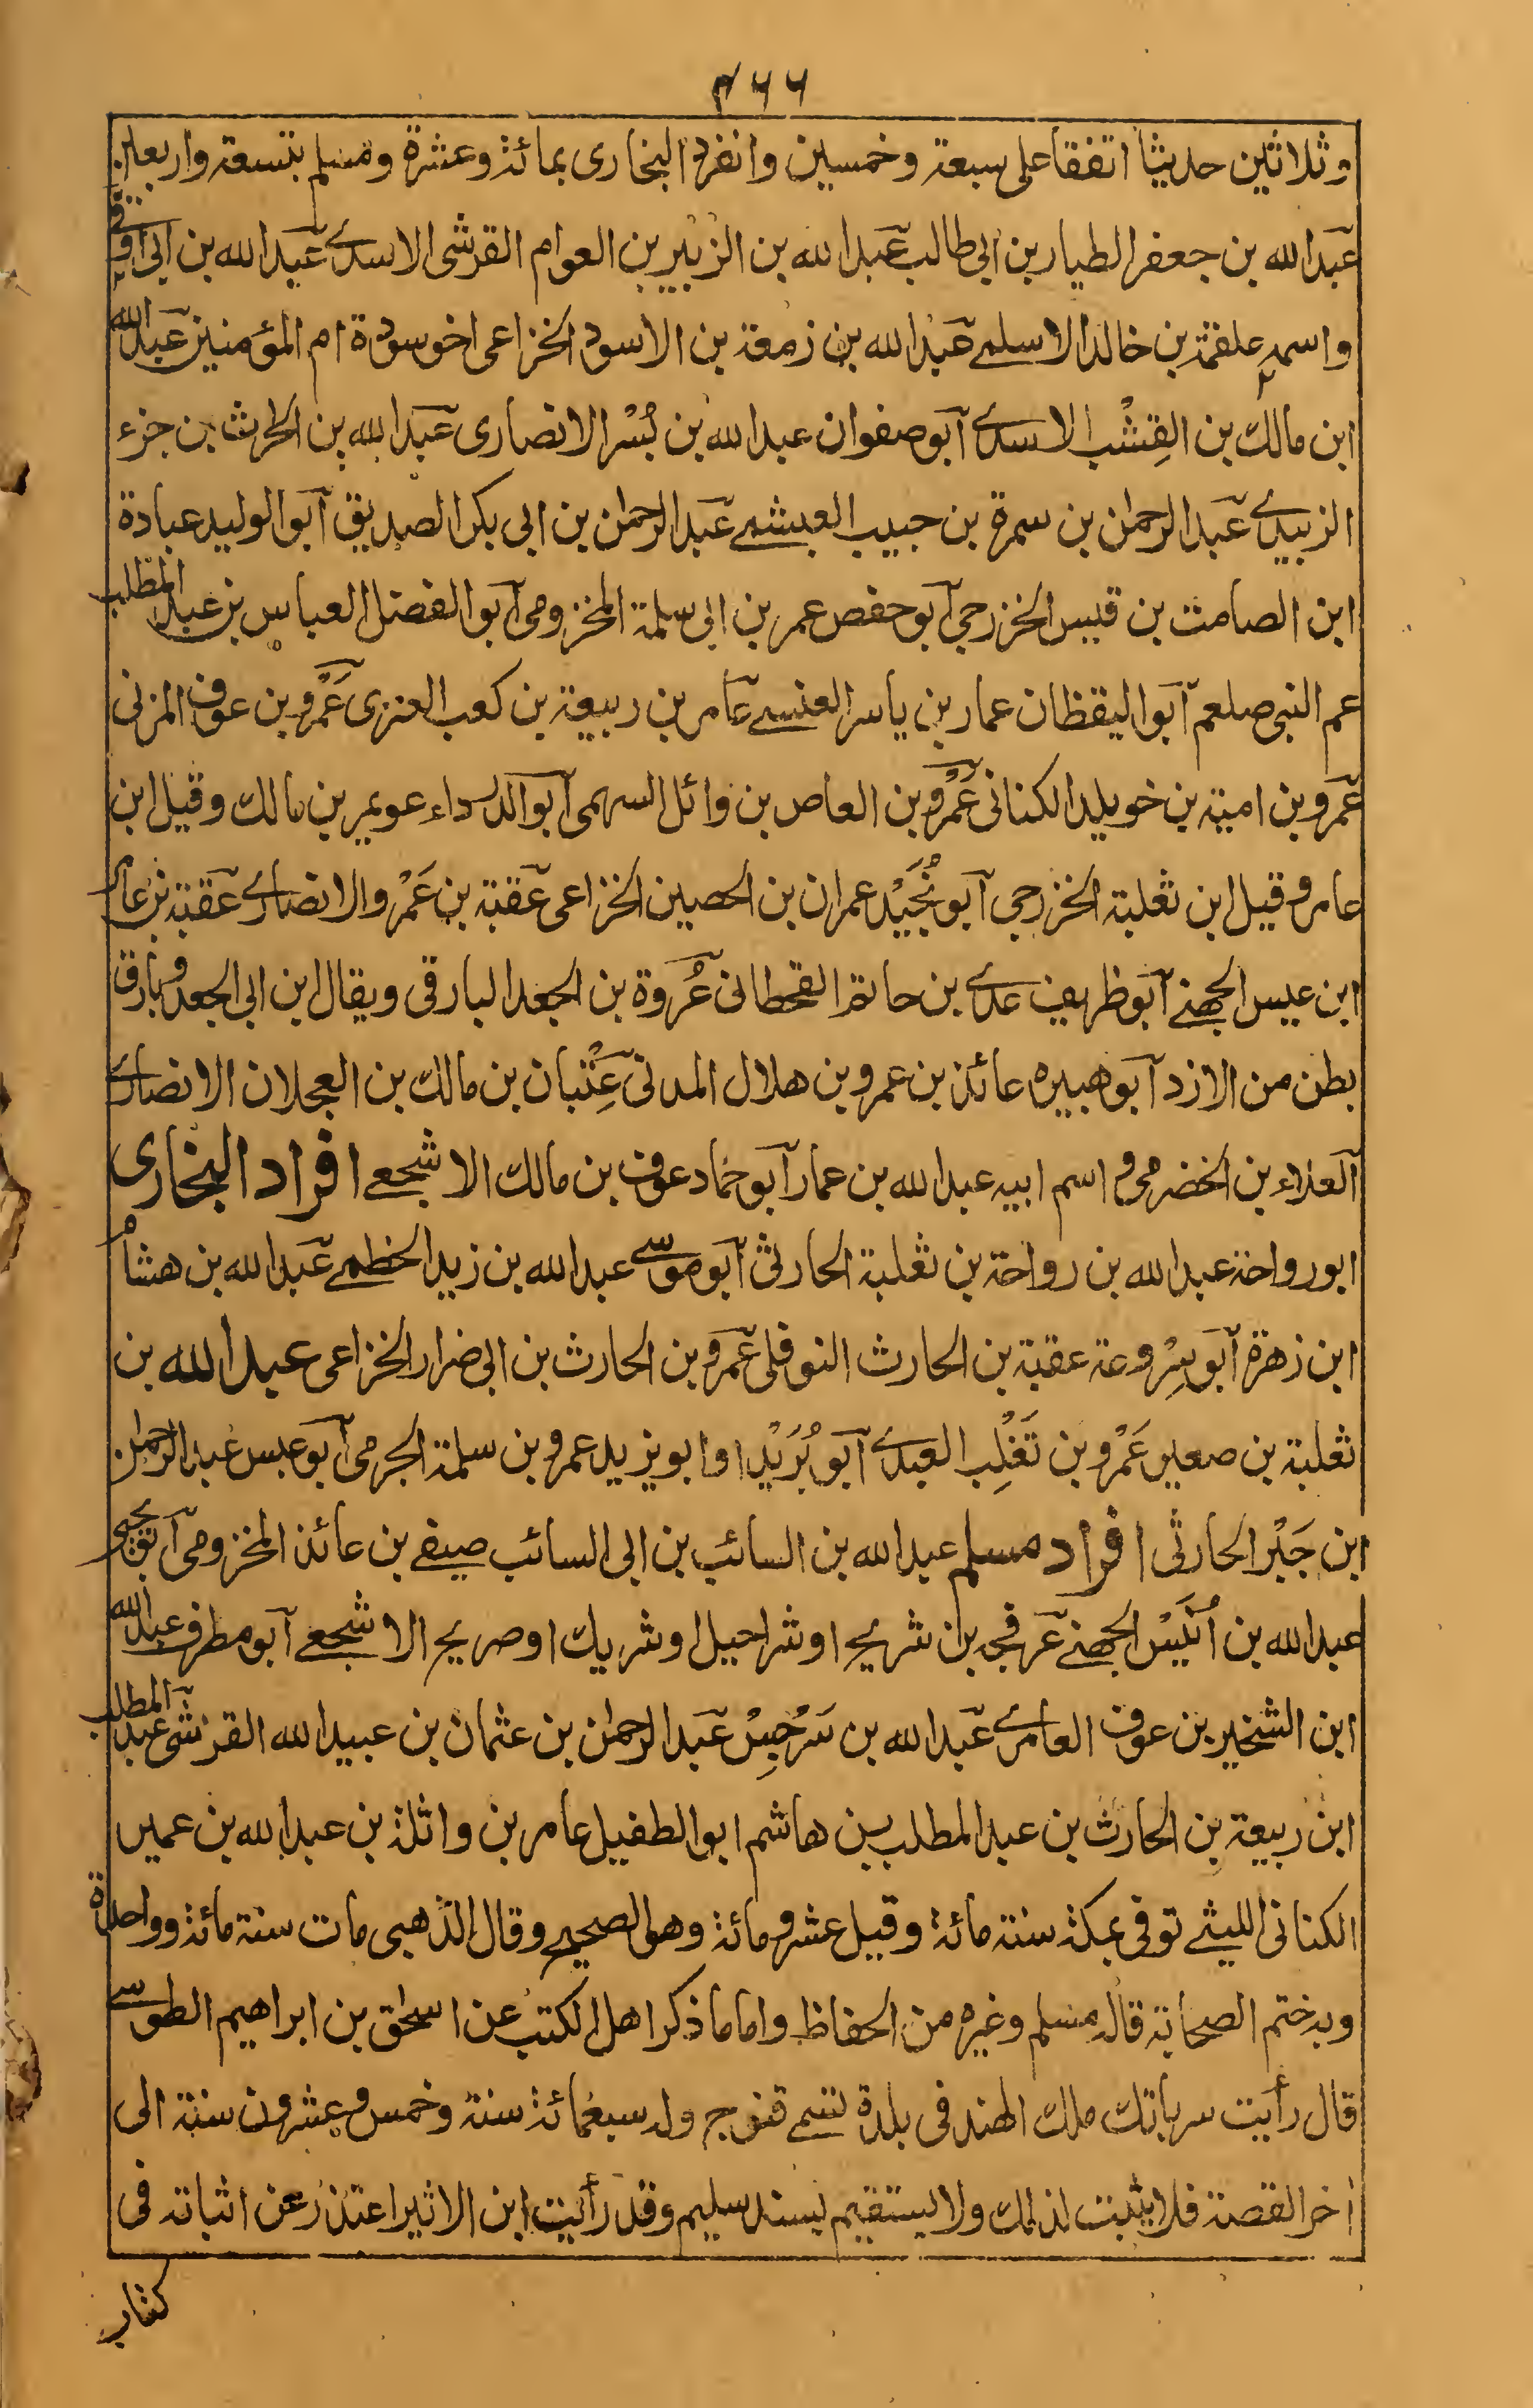 ٢٦٦
وثلاثين حديثا اتفقا على سبعة وخمسين وانفرد البخارى بمائة وعشرة ومسلم بتسعة واربعين
عبدالله بن جعفر الطيار بن ابى طالب عبدالله بن الزبير بن العوام القرشى الاسدى عبدالله بن ابى اوفى
واسمه علقمة بن خالد الاسلمى عبدالله بن زمعة بن الاسود الخزاعى اخو سودة ام المؤمنين عبدالله
ابن مالك بن القِشْب الاسدى آبو صفوان عبدالله بن بُسْر الانصارى عبدالله بن الحرث بن جزء
الزبيدى عبدالرحمٰن بن سمرة بن حبيب العبشمى عبدالرحمٰن بن ابى بكر الصديق آبو الوليد عبادة
ابن الصامت بن قيس الخزرجى آبو حفص عمر بن ابى سلمة المخزومى آبو الفضل العباس بن عبدالمطلب
عم النبى صلعم آبو اليقظان عمار بن ياسر العنسى عامر بن ربيعة بن كعب العنزى عَمْرو بن عوف المزنى
عمرو بن امية بن خويلد الكنانى عَمْرو بن العاص بن وائل السهمى آبو الدرداء عويمر بن مالك وقيل ابن
عامر وقيل ابن ثعلبة الخزرجى آبو نُجَيْد عمران بن الحصين الخزاعى عقبة بن عَمْرو الانصارى عقبة بن عامر
ابن عبس الجهنى آبو ظريف عدى بن حاتم القحطانى عُروة بن الجعد البارقى ويقال ابن ابى الجعد وبارق
بطن من الازد آبو هبيره عائذ بن عمرو بن هلال المدنى عِتْبان بن مالك بن العجلان الانصارى
آلعلاء بن الخضرمى و اسم ابيه عبدالله بن عمار آبو حماد عوف بن مالك الاشجعى افراد البخارى
ابو رواحة عبدالله بن رواحة بن ثعلبة الحارثى آبو موسى عبدالله بن زيد الخطمى عبدالله بن هشام
ابن زهرة آبو سِروعة عقبة بن الحارث النوفلى عمرو بن الحارث بن ابى ضرار الخزاعى عبدالله بن
ثعلبة بن صعير عَمْرو بن تَغْلِب العبدى آبو بُرَيْد او ابو يزيد عمرو بن سلمة الجرمى آبو عبس عبدالرحمٰن
ابن جَبْر الحارثى افراد مسلم عبدالله بن السائب بن ابى السائب صيفى بن عائذ المخزومى آبو يحيى
عبدالله بن اُنَيْس الجهنى عرفجه بن شريح او شراحيل او شريك او صريح الاشجعى آبو مطرف عبدالله
ابن الشخير بن عوف العامرى عبدالله بن سَرْجِسْ عبدالرحمٰن بن عثمان بن عبيدالله القرشى عبدالمطلب
ابن ربيعة بن الحارث بن عبدالمطلب بن هاشم ابو الطفيل عامر بن واثلة بن عبدالله بن عمير
الكنانى الليثى توفى بمكة سنة مائة وقيل عشر ومائة وهو الصحيح وقال الذهبى مات سنة مائة وواحدة
وبه ختم الصحابة قاله مسلم وغيره من الحفاظ واما ما ذكر اهل الكتب عن اسحٰق بن ابراهيم الطوسى
قال رأيت سرباتك ملك الهند فى بلدة تسمى قنوج وله سبعمائة سنة وخمس وعشرون سنة الى
اٰخر القصة فلا يثبت لذلك ولا يستقيم بسند سليم وقد رأيت ابن الاثير اعتذر عن اثباته فى
كتاب